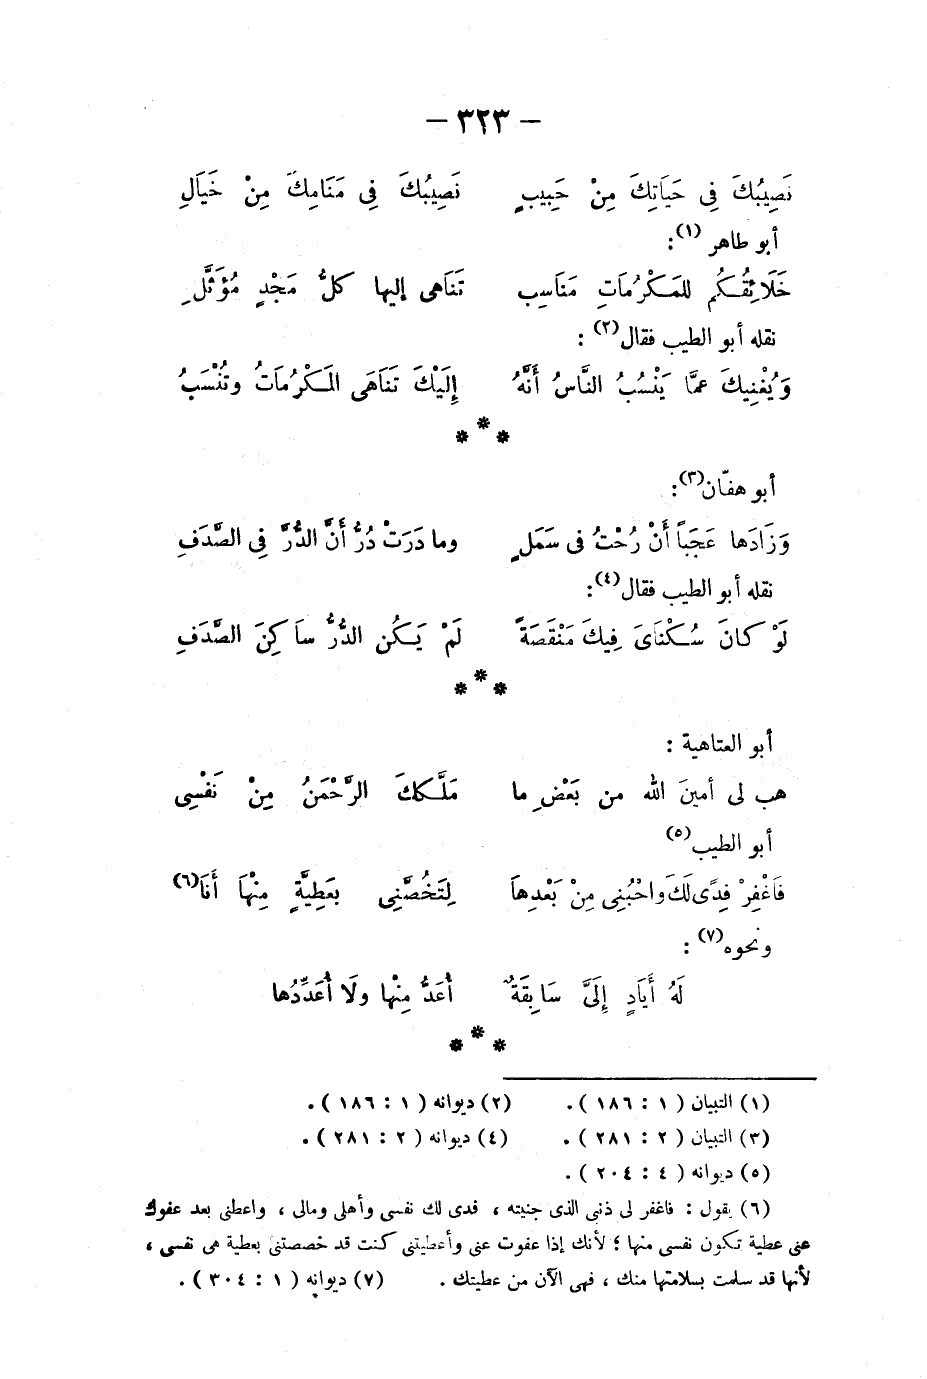 — ٣٢٣ —
نَصِيبُكَ فِى حَيَاتِكَ مِنْ حَبِيبٍ نَصِيبُكَ فِى مَنَامِكَ مِنْ خَيَالِ
أبو طاهر (١):
خَلَائِقُكُم للمَكْرُمَاتِ مَنَاسِب تَنَاهَى إليها كلُّ مَجْدٍ مُؤَثَّلِ
نقله أبو الطيب فقال (٢) :
وَيُغْنِيكَ عمَّا يَنْسُبُ النَّاسُ أَنَّهُ إِلَيْكَ تَنَاهَى المَكْرُمَاتُ وتُنْسَبُ
* * *
أبو هفّان (٣):
وَزَادَها عَجَبَاً أَنْ رُحْتُ فى سَمَلٍ وما دَرَتْ دُرُّ أَنَّ الدُّرَّ فِى الصَّدَفِ
نقله أبو الطيب فقال (٤):
لَوْ كانَ سُكْنَاىَ فِيكَ مَنْقَصَةً لَمْ يَكُن الدُّرُّ سَاكِنَ الصَّدَفِ
* * *
أبو العتاهية :
هب لى أمينَ الله من بَعْضِ ما مَلَّككَ الرَّحْمَنُ مِنْ نَفْسِى
أبو الطيب (٥)
فَاغْفِرْ فِدًى لَكَ واحْبُنِى مِنْ بَعْدِها لِتَخُصَّنِى بعَطِيَّةٍ مِنْهَا أَنَا (٦)
ونحوه (٧) :
لَهُ أَيَادٍ إِلَىَّ سَابِقَةٌ أُعَدُّ مِنْها ولَا أُعَدِّدُها
* * *
(١) التبيان ( ١ : ١٨٦ ) . (٢) ديوانه ( ١ : ١٨٦ ) .
(٣) التبيان ( ٢ : ٢٨١ ) . (٤) ديوانه ( ٢ : ٢٨١ ) .
(٥) ديوانه ( ٤ : ٢٠٤ ) .
(٦) يقول : فاغفر لى ذنبى الذى جنيته ، فدى لك نفسى وأهلى ومالى ، واعطنى بعد عفوك
عنى عطية تكون نفسى منها ؛ لأنك إذا عفوت عنى وأعطيتنى كنت قد خصصتنى بعطية هى نفسى ،
لأنها قد سلمت بسلامتها منك ، فهى الآن من عطيتك . (٧) ديوانه ( ١ : ٣٠٤ ) .